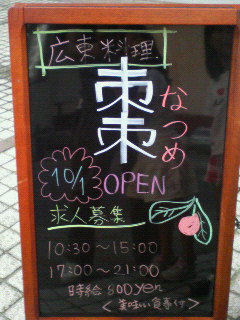 広東料理
棗 なつめ
10/1 OPEN
求人募集
10:30～15:00
17:00～21:00
時給 800yen
＜美味しい食事付＞